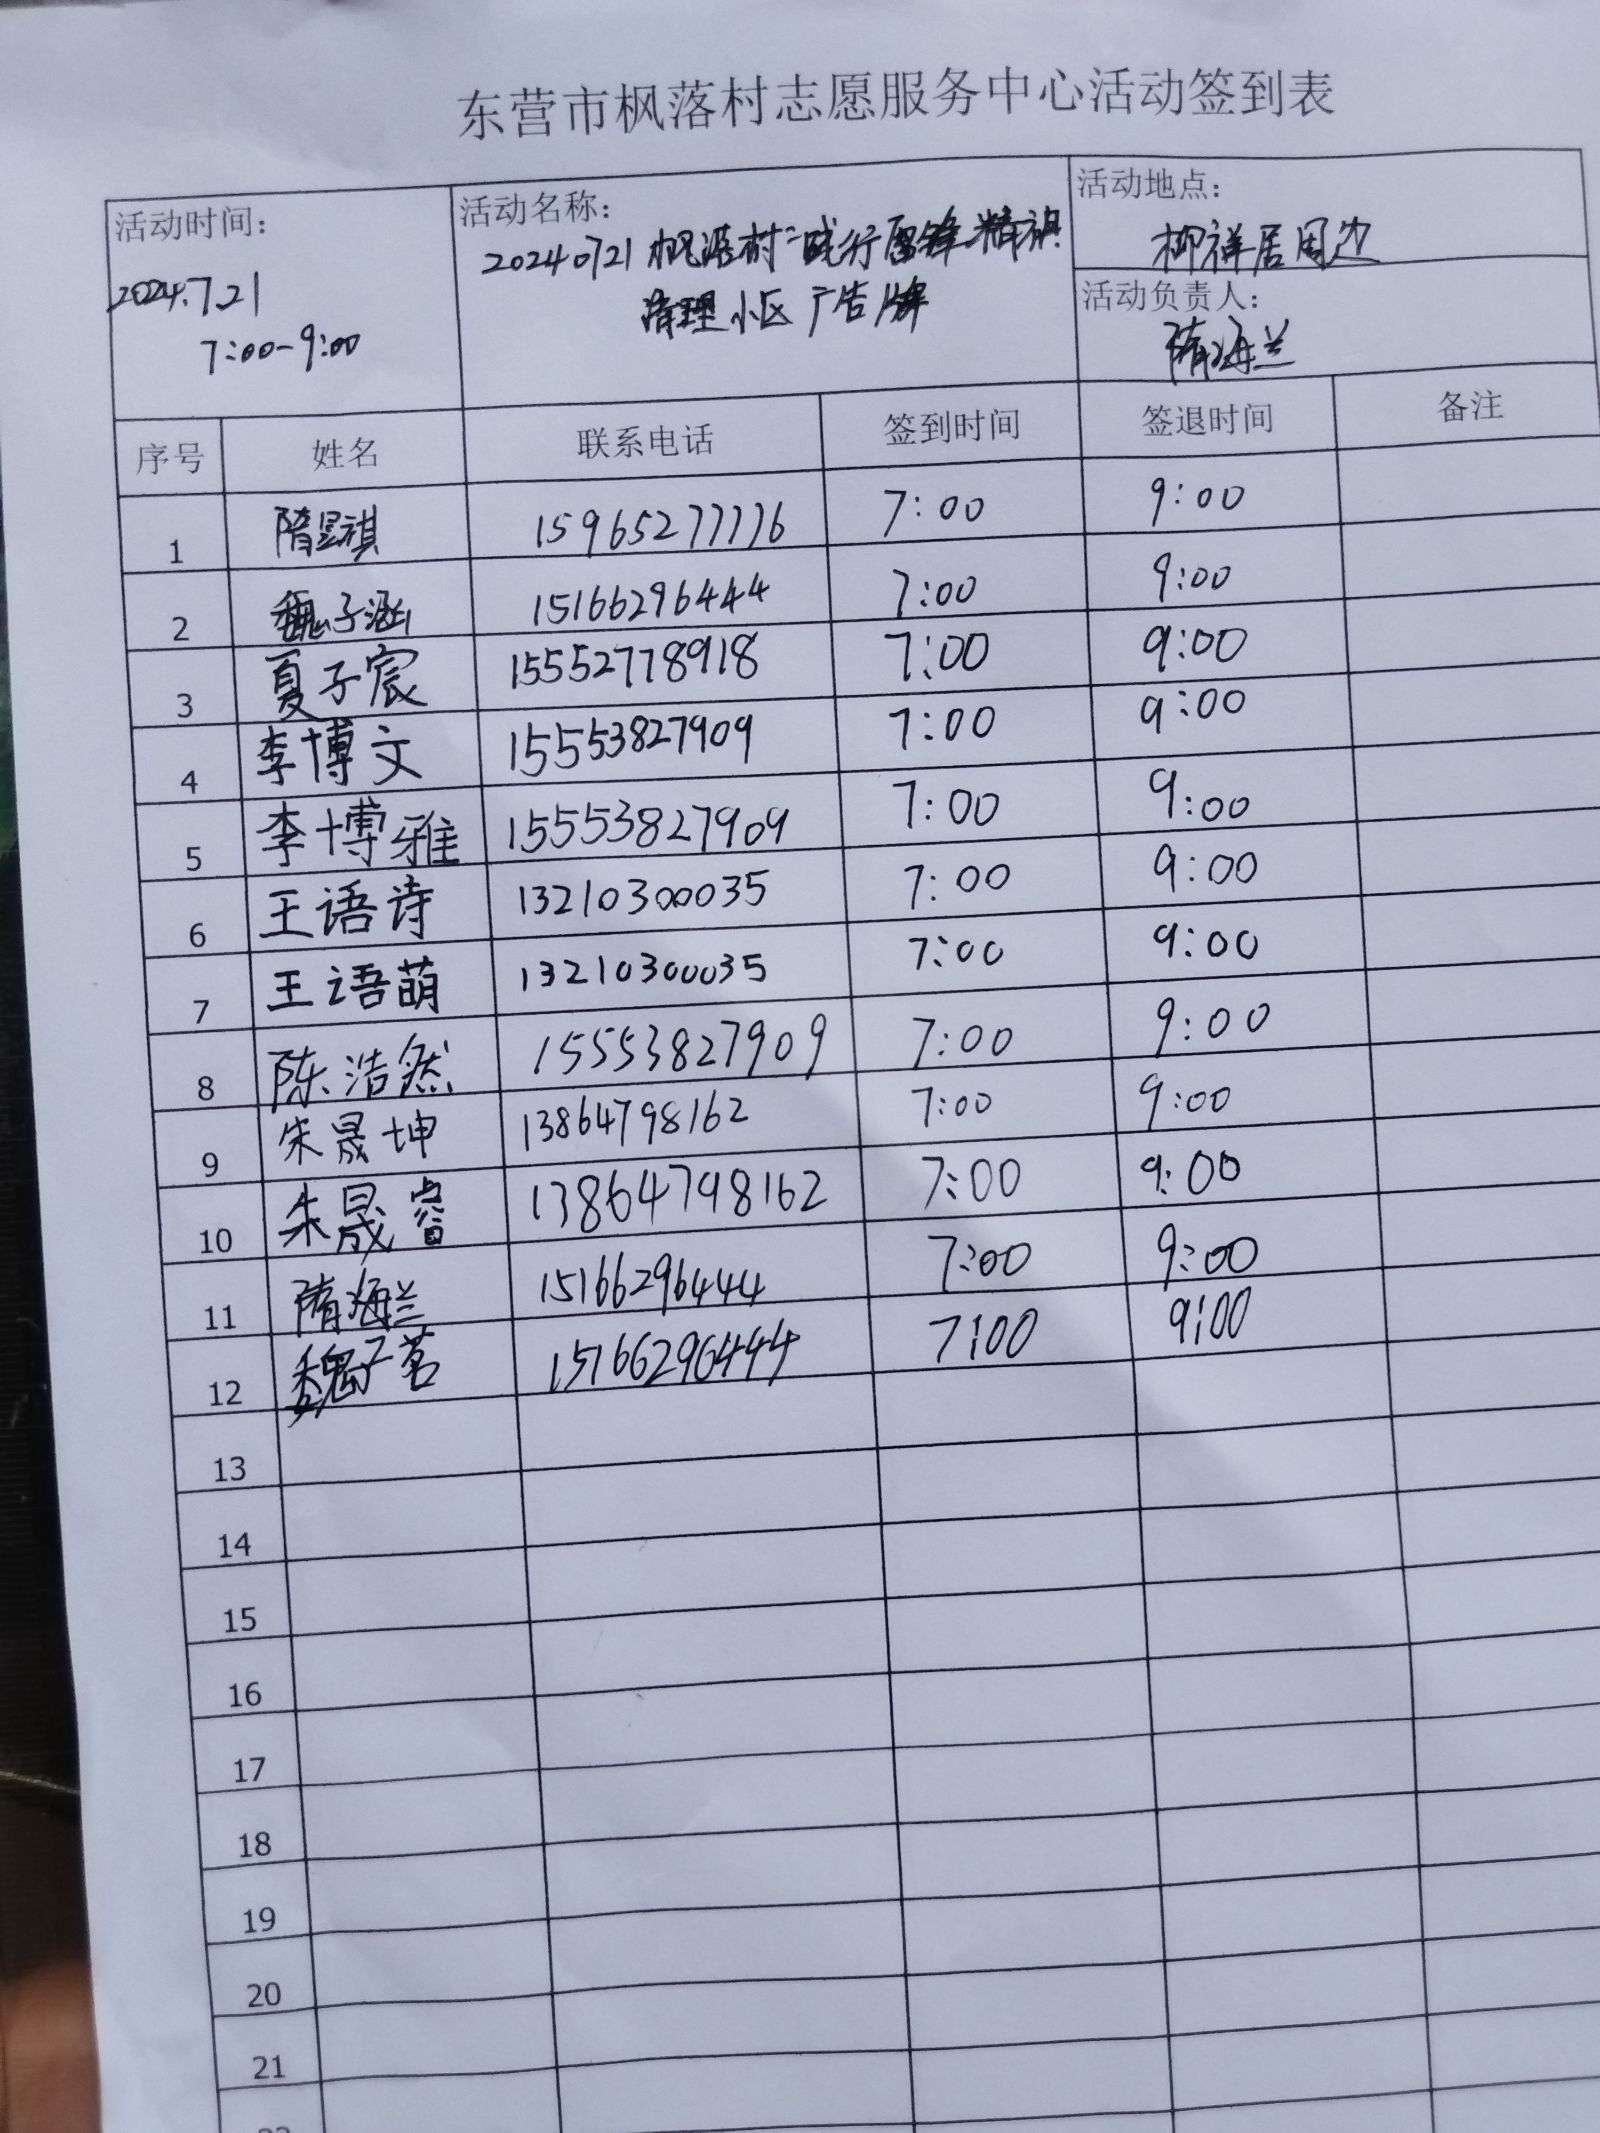 东营市枫落村志愿服务中心活动签到表
活动时间： 活动名称： 活动地点：
2024.7.21 20240721枫落村"践行雷锋精神 柳祥居周边
7:00-9:00 清理小区广告牌 活动负责人：
隋海兰
序号 姓名 联系电话 签到时间 签退时间 备注
1 隋昱祺 15965277776 7:00 9:00
2 魏子涵 15166296444 7:00 9:00
3 夏子宸 15552778918 7:00 9:00
4 李博文 15553827909 7:00 9:00
5 李博雅 15553827909 7:00 9:00
6 王语诗 13210300035 7:00 9:00
7 王语萌 13210300035 7:00 9:00
8 陈浩然 15553827909 7:00 9:00
9 朱晟坤 13864798162 7:00 9:00
10 朱晟睿 13864798162 7:00 9:00
11 隋海兰 15166296444 7:00 9:00
12 魏子茗 15166296444 7:00 9:00
13
14
15
16
17
18
19
20
21